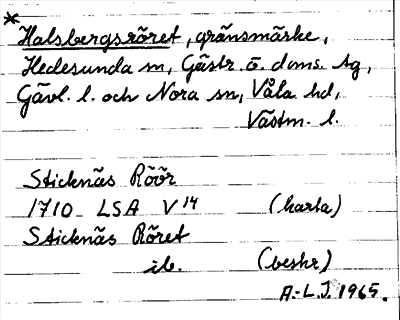 *
Halsbergsröret, gränsmärke,
Hedesunda sn, Gästr. ö. doms. tg,
Gävl. l. och Nora sn, Våla hd,
Västm. l.
Sticknäs Röör
1710 LSA V14 (karta)
Sticknäs Röret
ib. (beskr)
A.-L.J. 1965.